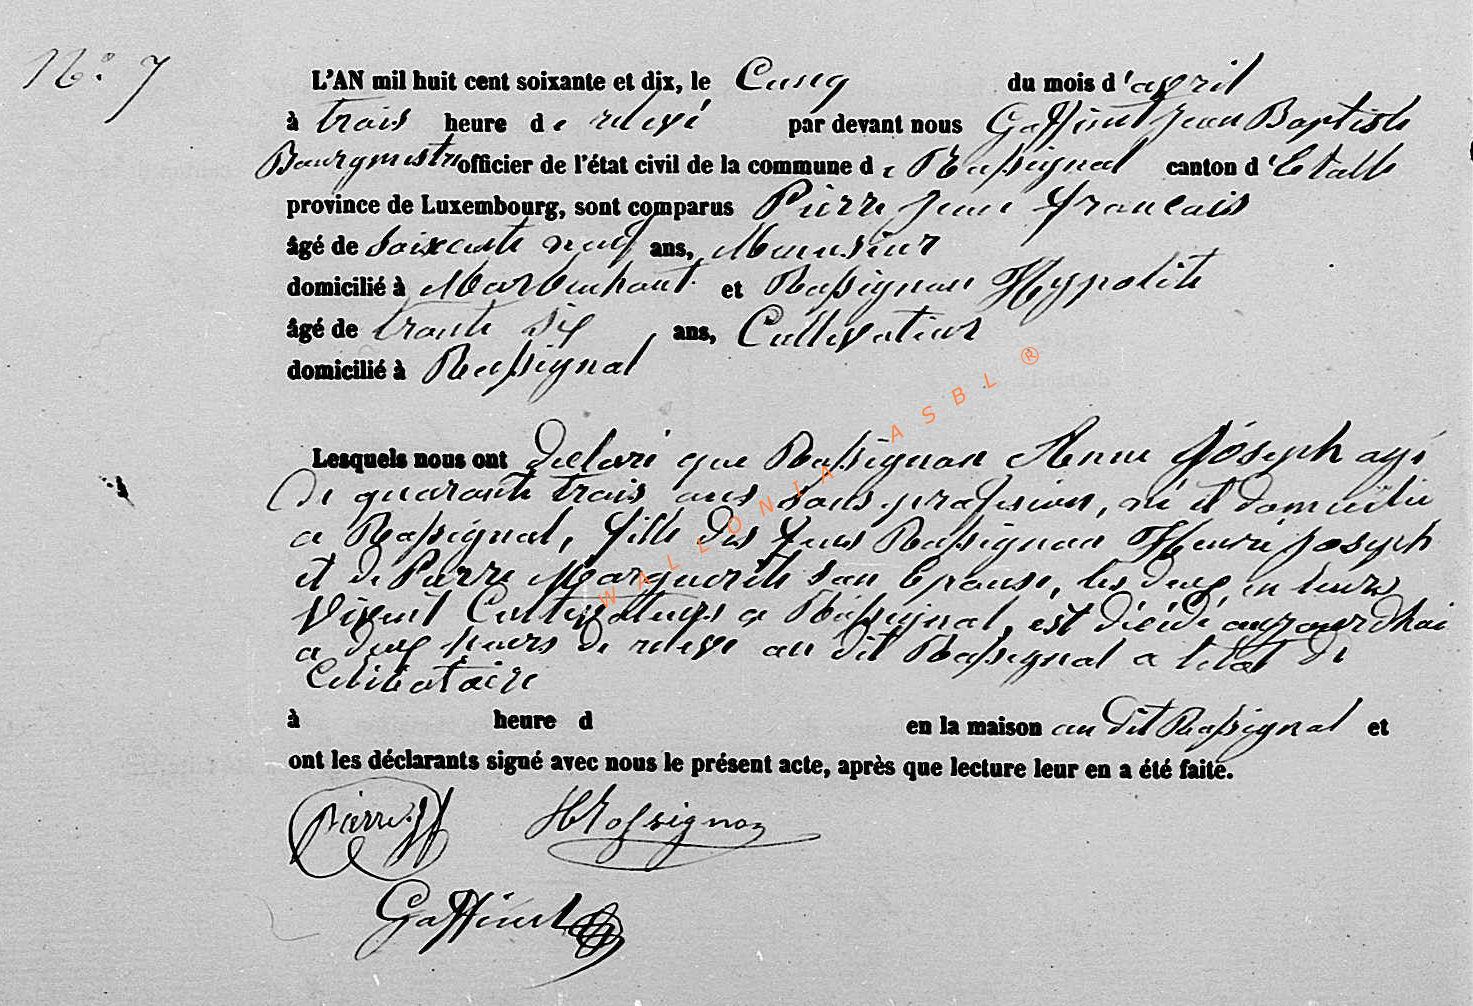 N° 7
L'AN mil huit cent soixante et dix, le Cinq du mois d'avril
à trois heure de relevé par devant nous Gaffinet Jean Baptiste
Bourgmestre officier de l'état civil de la commune de Rossignol canton d'Etalle
province de Luxembourg, sont comparus Pierre Jean François
âgé de soixante neuf ans, Menusier
domicilié à Marbehant et Rossignon Hypolite
âgé de trente six ans, Cultivateur
domicilié à Rossignol
Lesquels nous ont déclaré que Rossignon Anne Joséph agé
de quarante trois ans sans profesion, né et domicilié
a Rossignol, fille des feus Rossignon Henri joseph
et de Pierre Marguerite son Epouse, les deux en leurs
vivent Cultivateurs a Rossignol, est décédé aujourdhui
a deux heurs de relevé au dit Rossignol a l'etat de
Celibataire
à heure d en la maison au dit Rossignol et
ont les déclarants signé avec nous le présent acte, après que lecture leur en a été faite.
Pierre JF HRossignon
Gaffinet
WALLONIA ASBL ®